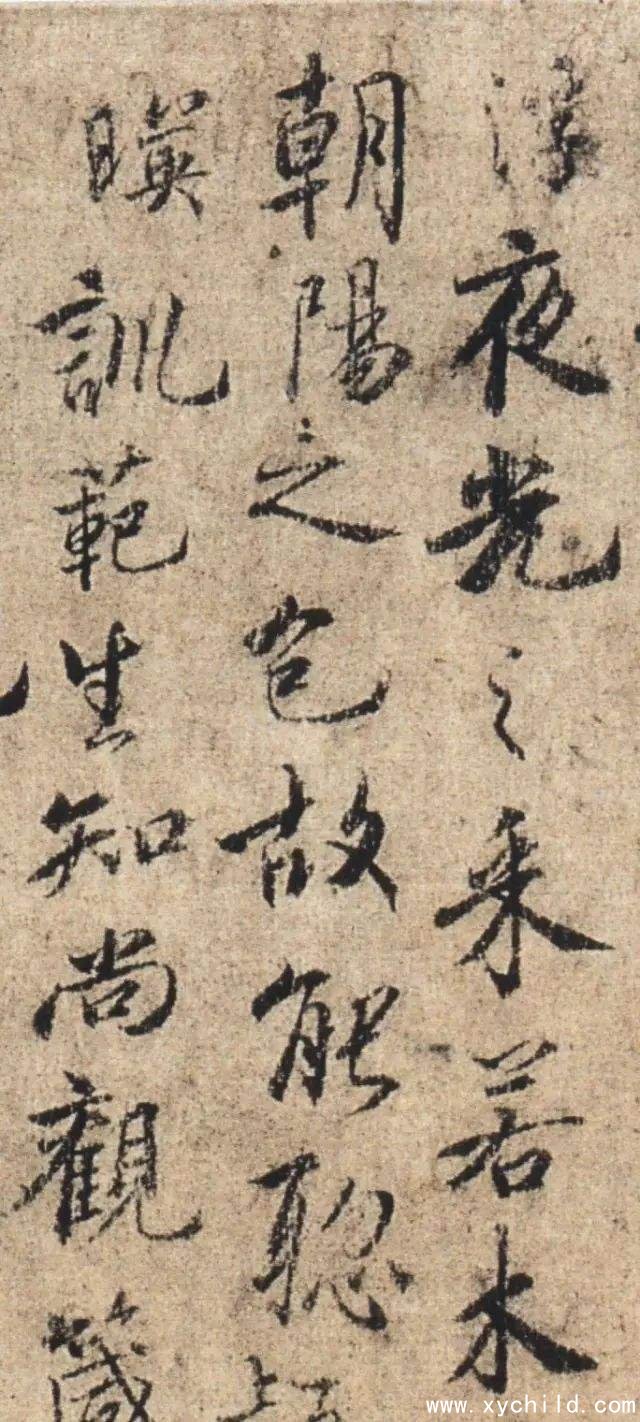 浮夜光之采若木
朝陽之色故能聰
暎訓範生知尚觀箴
www.xychild.com